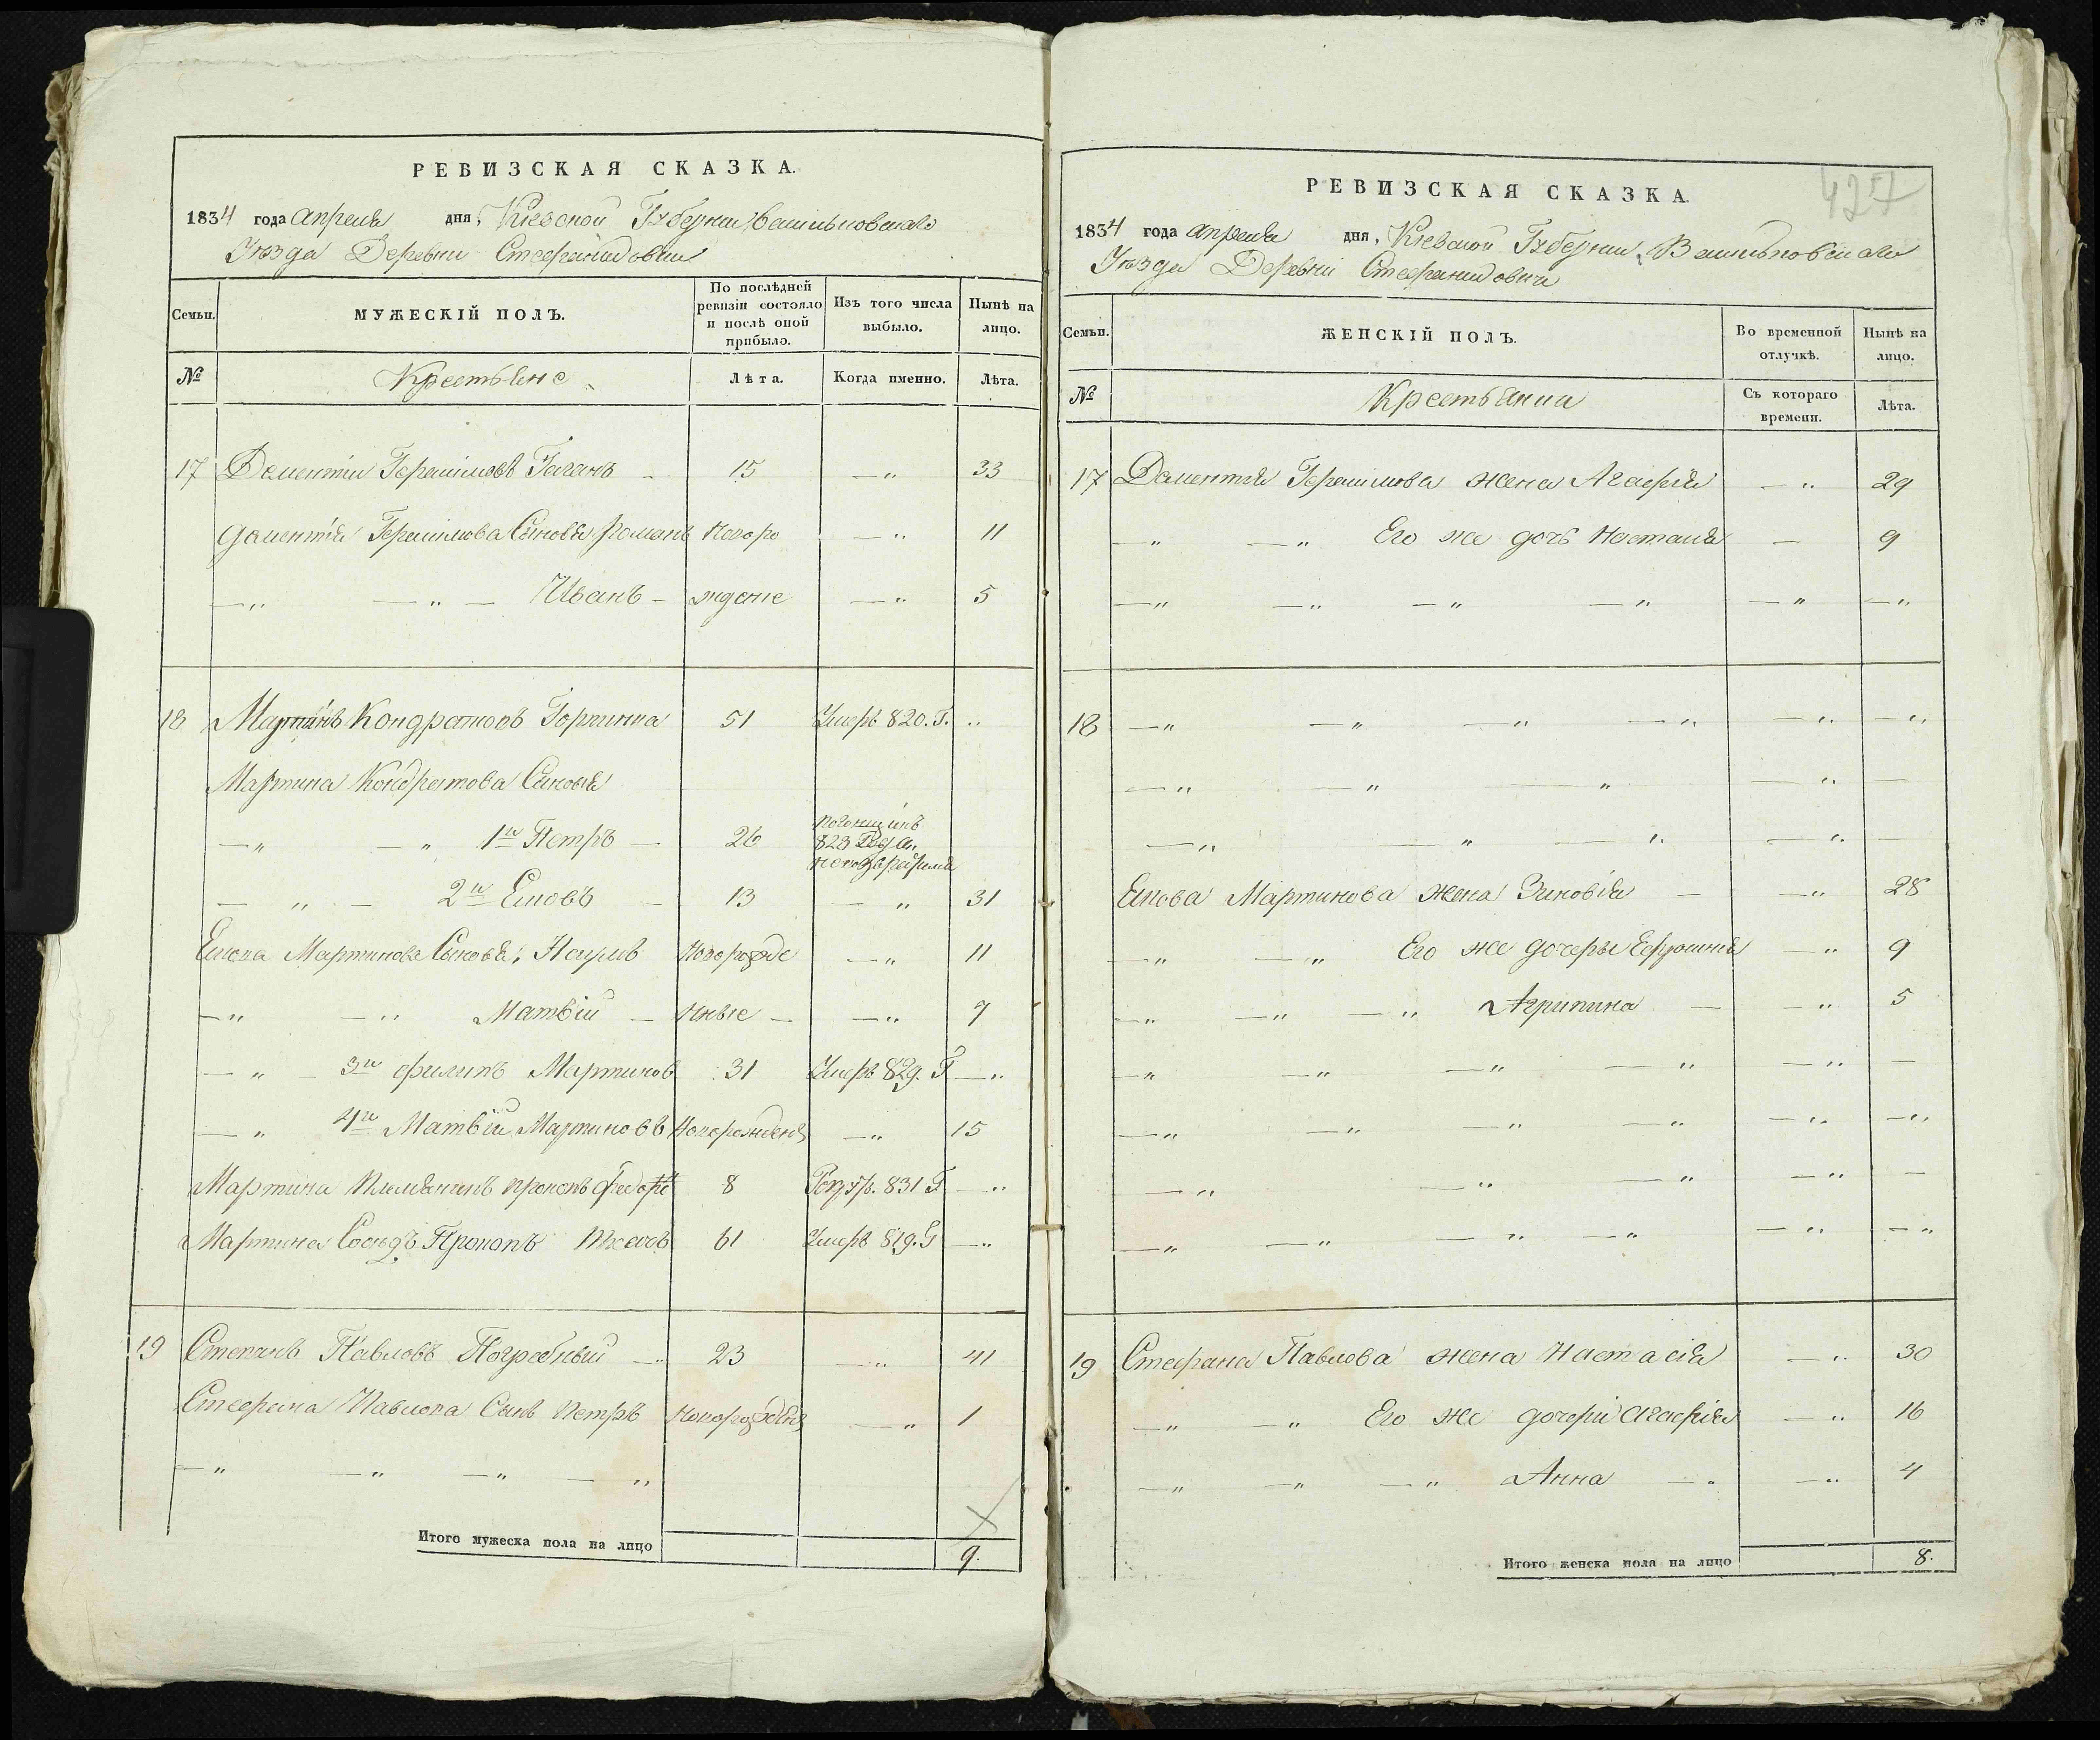 РЕВИЗСКАЯ СКАЗКА.
1834 года апреля дня, Кіевской Губерніи Васильковскаго
Уѣзда Деревни Стефанидовки
Семьи. МУЖЕСКІЙ ПОЛЪ. По послѣдней ревизіи состояло и послѣ оной прибыло. Изъ того числа выбыло. Нынѣ на лицо.
№ Крестьяне Лѣта. Когда именно. Лѣта.
17 Дементій Герасимовъ Гаганъ — 15 — „ 33
Дементія Герасимова Сыновья Романъ Новоро — „ 11
— „ — „ — Иванъ — ждение — „ 5
18 Мартинъ Кондратовъ 51 Умеръ 820. Г. „
Мартина Кондратова Сыновья
— „ — „ 1й Петръ — 26 828
— „ — 2й Емовъ — 13 — „ 31
Мартинова Сыновья: Наумъ Новорожде — „ 11
— „ — „ Матвій — нные — — „ 7
— „ — 3й Филипъ Мартинов 31 Умеръ 829. Г — „
— „ 4й Матвій Мартиновъ Новорожденъ — „ 15
Мартина Племянникъ Прокопъ Федоро 8 Рекру. 831 Г — „
Мартина Сосѣдъ Прокопъ Ткачъ 61 Умеръ 819. Г — „
19 Степанъ Павловъ Погребный — „ 23 — „ 41
Стефана Павлова Сынъ Петръ Новорожденъ — „ 1
— „ — „ — „ — „
Итого мужеска пола на лицо 9.
427
РЕВИЗСКАЯ СКАЗКА.
1834 года апреля дня, Кіевской Губерніи, Васильковскаго
Уѣзда Деревни Стефанидовки
Семьи. ЖЕНСКІЙ ПОЛЪ. Во временной отлучкѣ. Нынѣ на лицо.
№ Крестьянки Съ котораго времени. Лѣта.
17 Дементія Герасимова жена Агафія — „ 29
— „ — „ Его же дочь Настасія — 9
— „ — „ — „ — „ — „ — „
18 — „ — „ — „ — „ — „ — „
— „ — „ — „ — „ —
— „ — „ — „ — „ —
Емова Мартинова жена Зиновія — — „ 28
— „ — „ Его же дочеры Ефросинія — „ 9
— „ — „ — „ Агрипина — — „ 5
— „ — „ — „ — „ — „ —
— „ — „ — „ — „ — „ — „
— „ — „ — „ — „ —
— „ — „ — „ — „ — „ — „
19 Стефана Павлова жена Настасія — „ 30
— „ — „ Его же дочери Агафія — „ 16
— „ — „ — „ Анна — „ — „ 4
Итого женска пола на лицо 8.